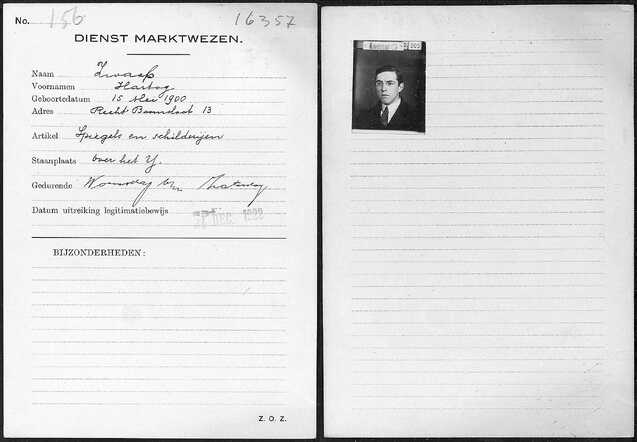 No. 156 16357
DIENST MARKTWEZEN.
Naam Zwaab
Voornamen Hartog
Geboortedatum 15 Mei 1900
Adres Recht Boomsloot 13
Artikel Spiegels en schilderijen
Staanplaats over het Y.
Gedurende Woensdag t/m Zaterdag
Datum uitreiking legitimatiebewijs DEC. 1922
BIJZONDERHEDEN:
Z. O. Z.